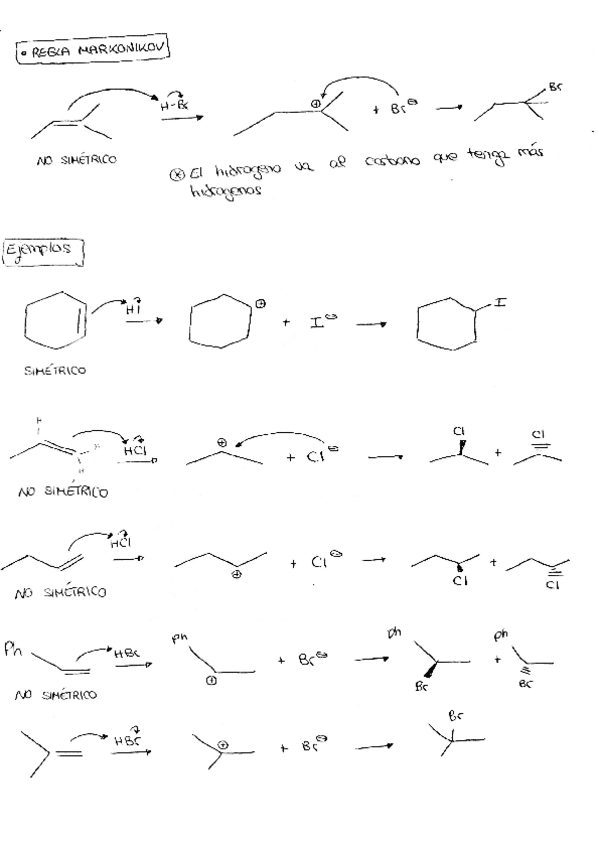 • REGLA MARKONIKOV
H-Br ⊕ + Br⊖ Br
NO SIMÉTRICO
⊗ El hidrogeno va al carbono que tenga más
hidrogenos
Ejemplos
HI ⊕ + I⊖ I
SIMÉTRICO
H H H HCl ⊕ + Cl⊖ Cl + Cl
NO SIMÉTRICO
HCl ⊕ + Cl⊖ Cl + Cl
NO SIMÉTRICO
Ph HBr Ph ⊕ + Br⊖ Ph Br + Ph Br
NO SIMÉTRICO
HBr ⊕ + Br⊖ Br